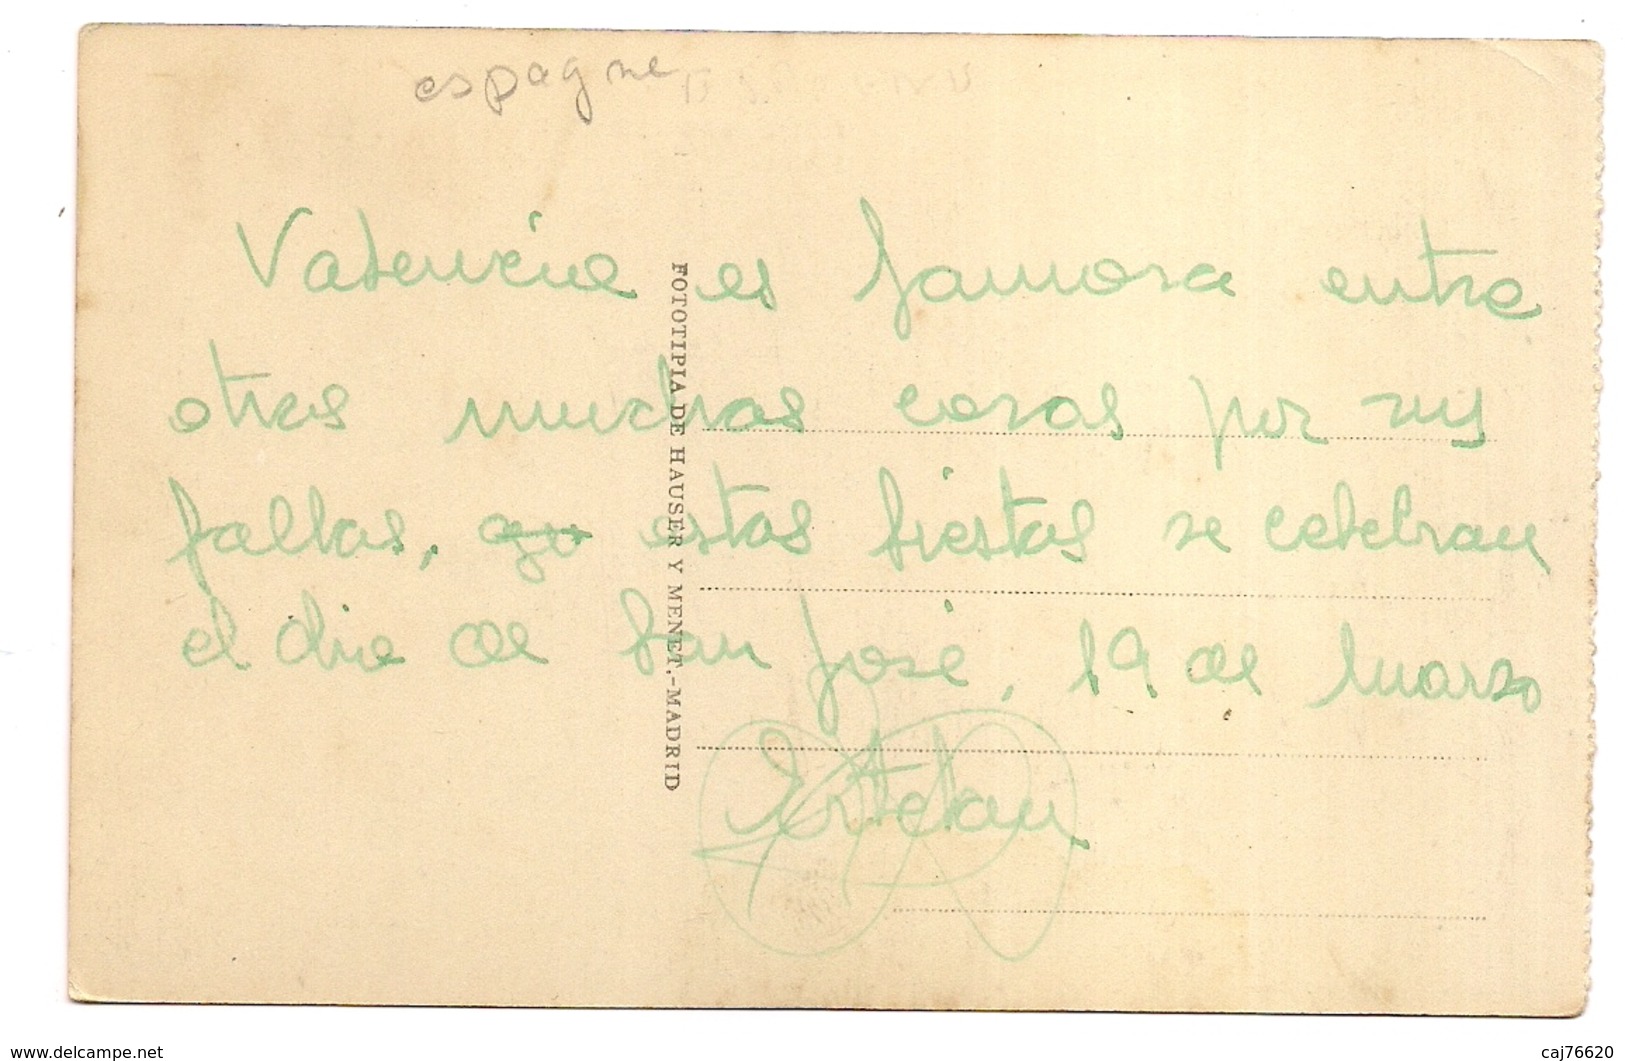 espagne
Valencia es famosa entre
otras muchas cosas por sus
fallas, estas fiestas se celebran
el dia de San José, 19 de Marzo
FOTOTIPIA DE HAUSER Y MENET.-MADRID
www.delcampe.net
caj76620